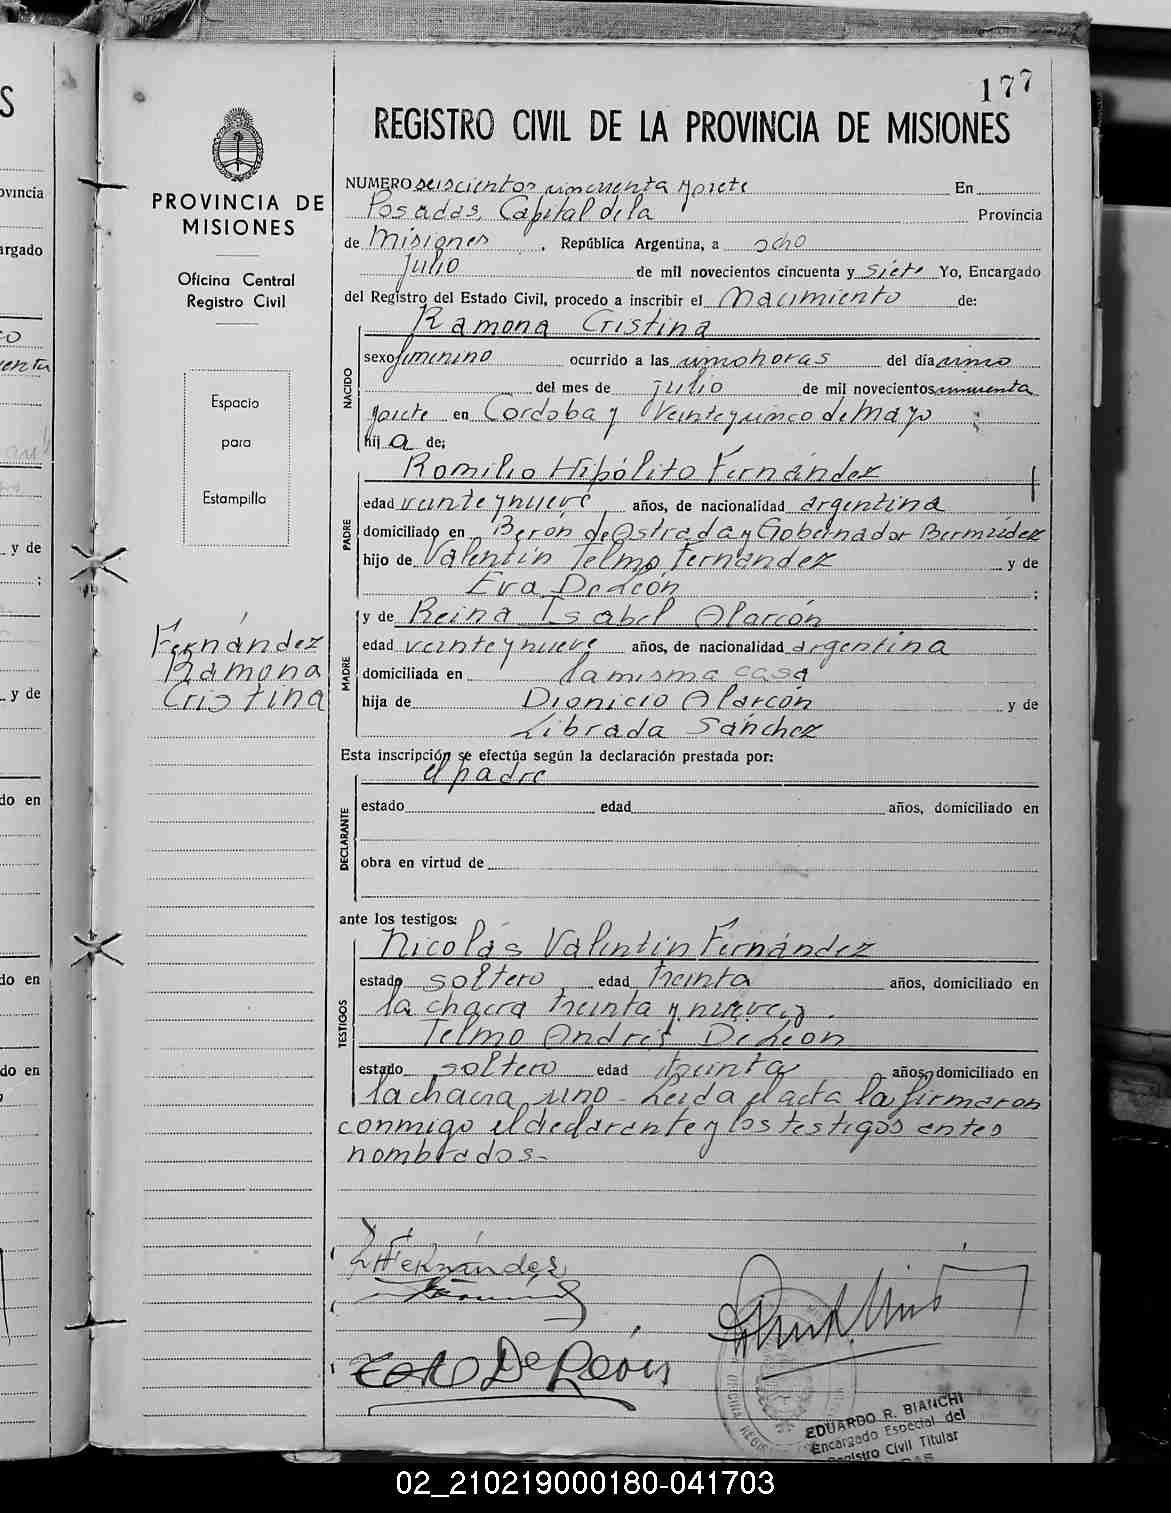 177
REGISTRO CIVIL DE LA PROVINCIA DE MISIONES
PROVINCIA DE
MISIONES
Oficina Central
Registro Civil
Espacio
para
Estampilla
Fernández
Ramona
Cristina
NUMERO seiscientos cincuenta y siete En
Posadas, Capital de la Provincia
de Misiones, República Argentina, a ocho
Julio de mil novecientos cincuenta y siete Yo, Encargado
del Registro del Estado Civil, procedo a inscribir el Nacimiento de:
NACIDO
Ramona Cristina
sexo femenino ocurrido a las cinco horas del día cinco
del mes de Julio de mil novecientos cincuenta
y siete en Córdoba y Veinte y cinco de Mayo ;
hija de;
PADRE
Romilio Hipólito Fernández
edad veinte y nueve años, de nacionalidad argentina
domiciliado en Berón de Astrada y Gobernador Bermúdez
hijo de Valentín Telmo Fernández y de
Eva De León ;
MADRE
y de Reina Isabel Alarcón
edad veinte y nueve años, de nacionalidad argentina
domiciliada en la misma casa
hija de Dionicio Alarcón y de
Librada Sánchez
Esta inscripción se efectúa según la declaración prestada por:
DECLARANTE
el padre
estado edad años, domiciliado en
obra en virtud de
ante los testigos:
TESTIGOS
Nicolás Valentín Fernández
estado soltero edad treinta años, domiciliado en
la chacra treinta y nueve y
Telmo Andrés De León
estado soltero edad treinta años, domiciliado en
la chacra uno - Leída el acta la firmaron
conmigo el declarante y los testigos antes
nombrados-
Fernández
De León
EDUARDO R. BIANCHI
Encargado Especial del
Registro Civil Titular
02_210219000180-041703